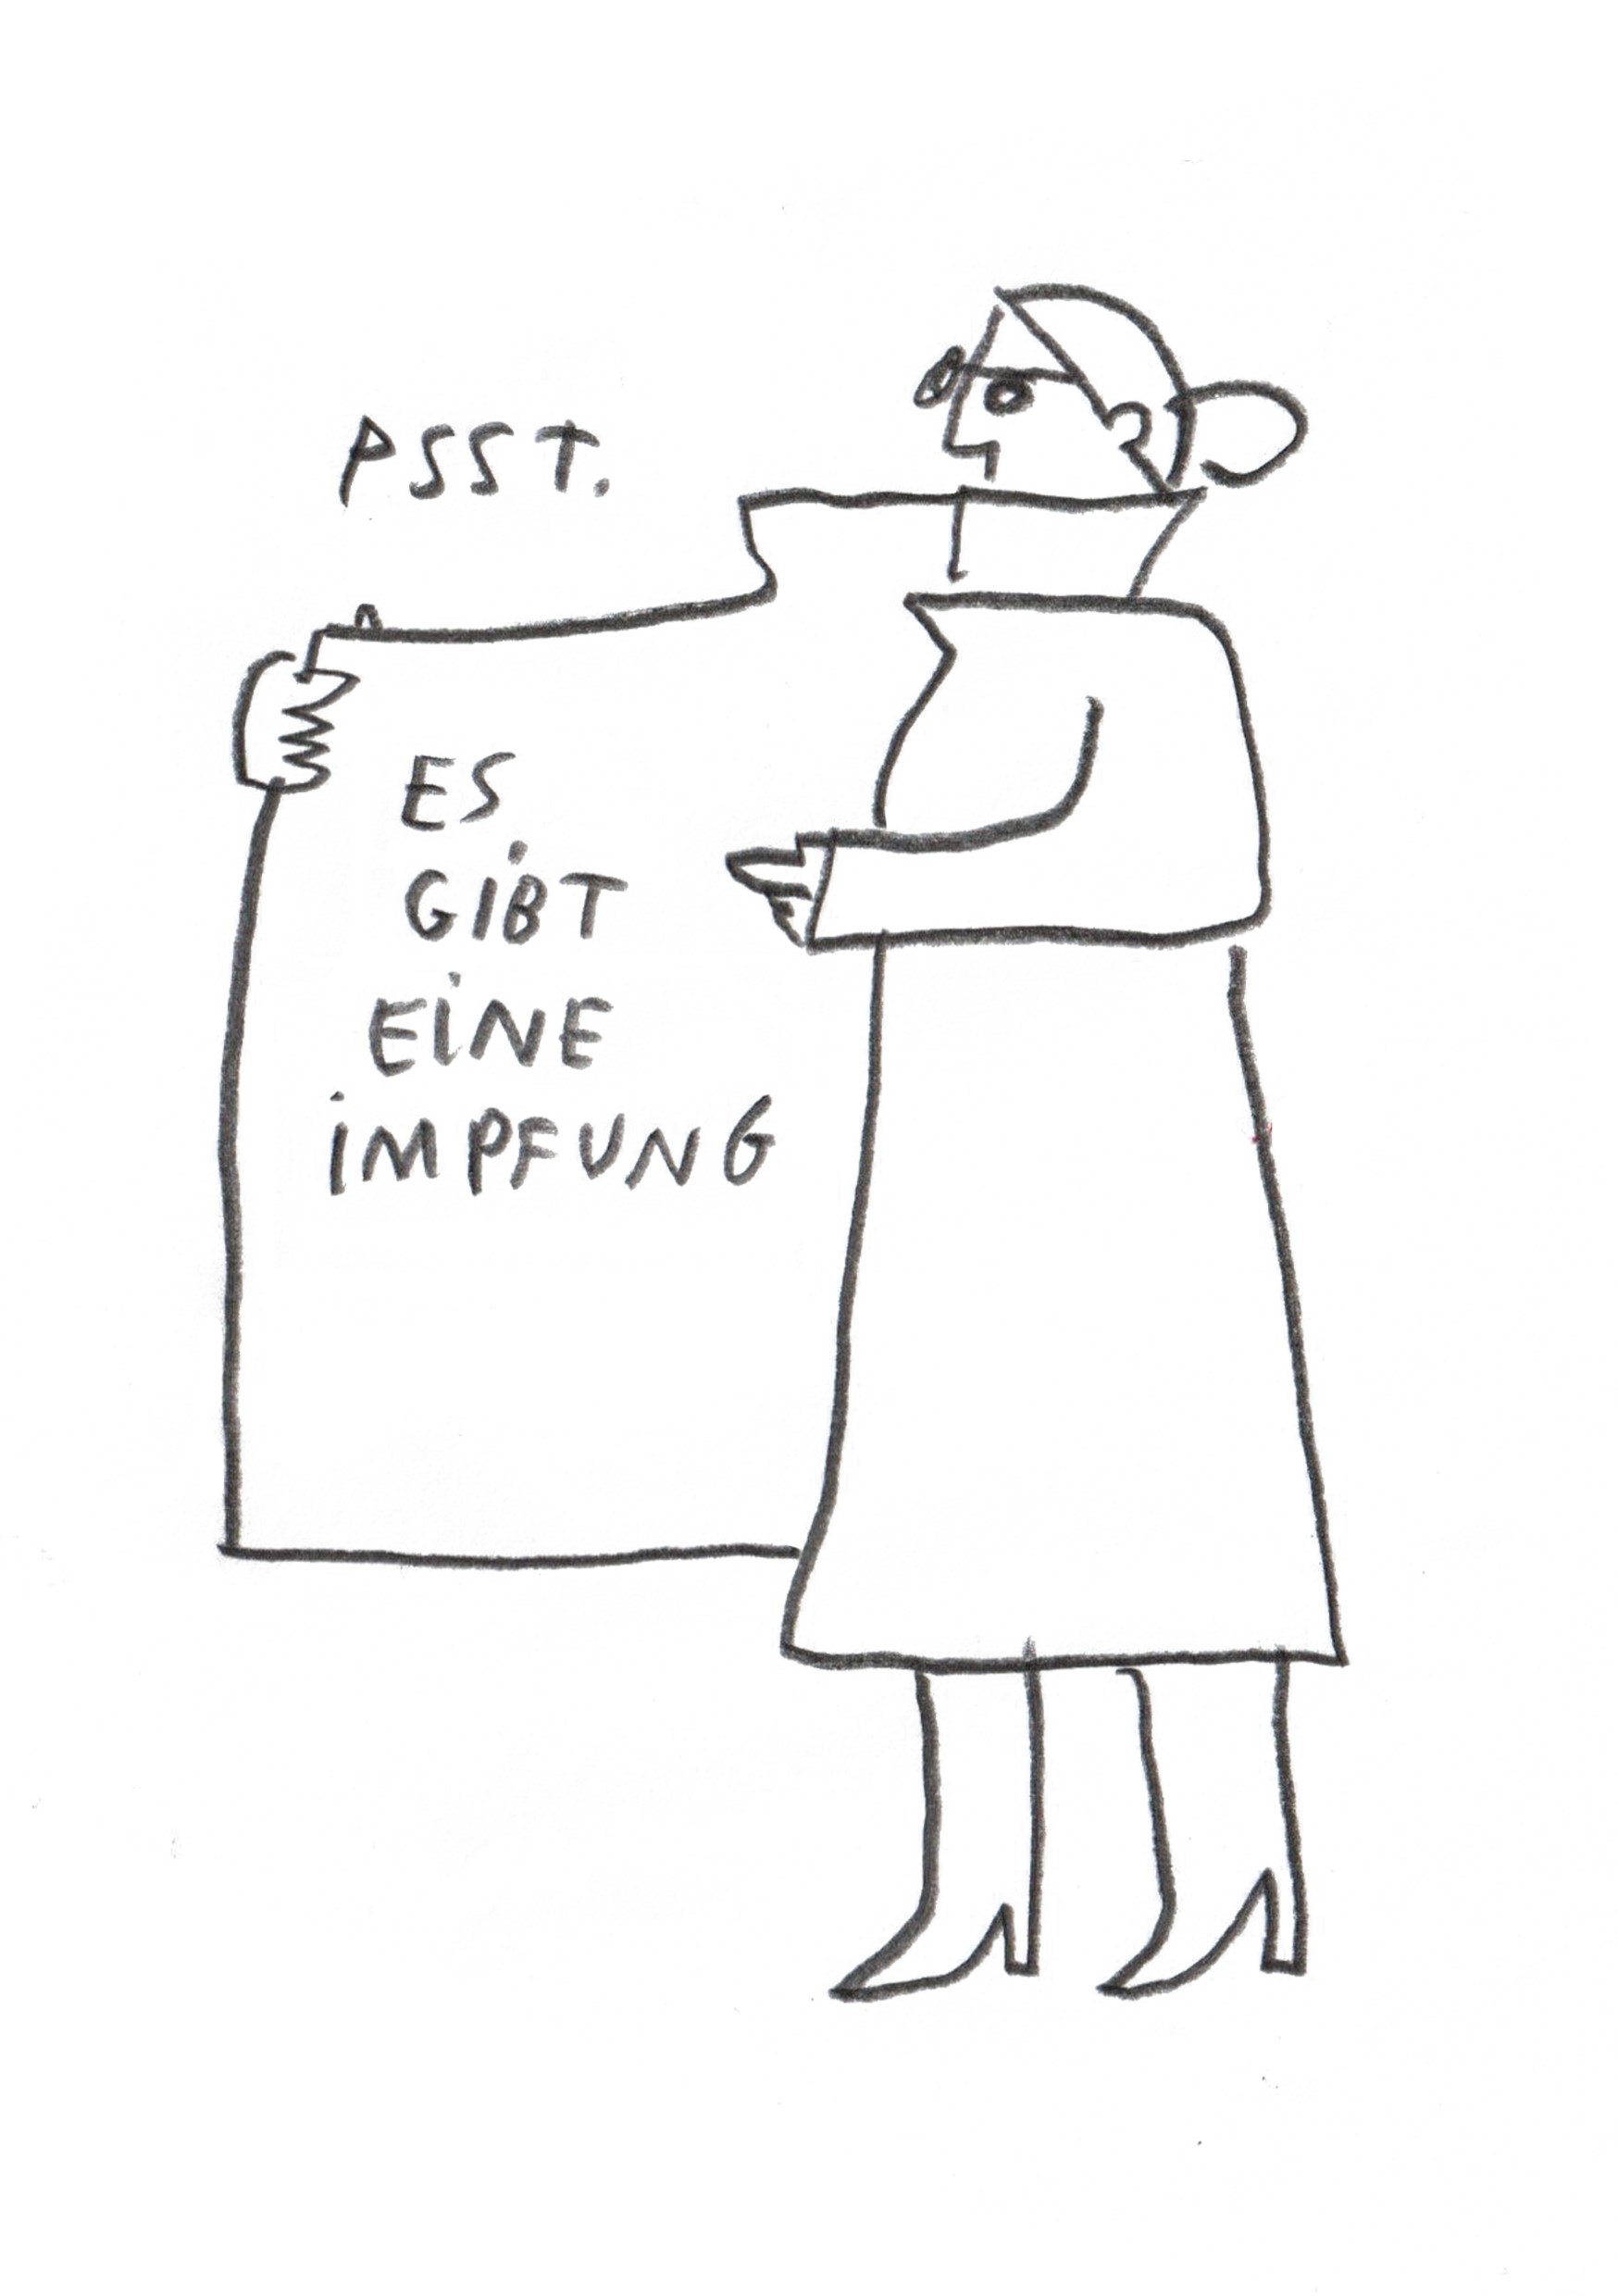 PSST.
ES
GIBT
EINE
IMPFUNG